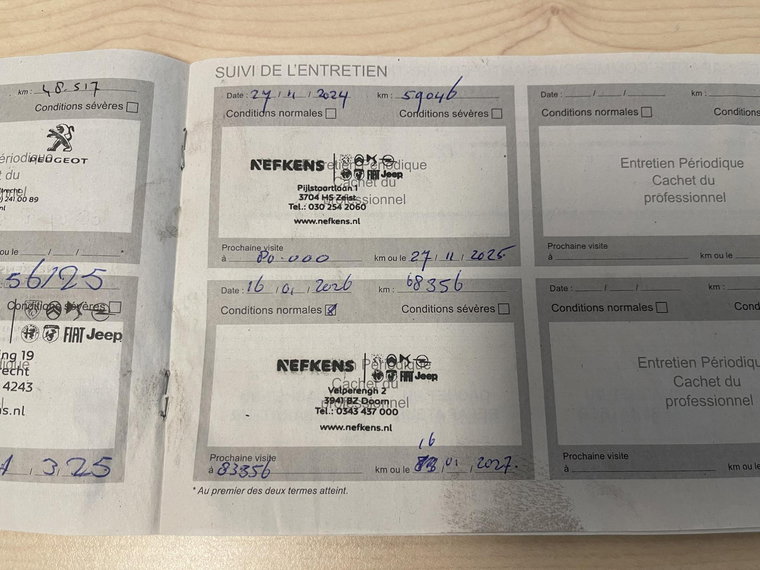 km : 48.517
Conditions sévères
PEUGEOT
241 00 89
ou le / / *
56/25
Conditions sévères
FIAT Jeep
ng 19
recht
4243
s.nl
3.25
SUIVI DE L'ENTRETIEN
Date : 27/11/2024 km : 59046
Conditions normales Conditions sévères
Entretien Périodique
Cachet du
professionnel
NEFKENS FIAT Jeep
Pijlstaartlaan 1
3704 HS Zeist
Tel.: 030 254 2060
www.nefkens.nl
Prochaine visite
à 80.000 km ou le 27/11/2025
Date : 16/01/2026 km : 68356
Conditions normales Conditions sévères
NEFKENS FIAT Jeep
Velperengh 2
3941 BZ Doorn
Tel.: 0343 437 000
www.nefkens.nl
Prochaine visite
à 83356 km ou le 16/01/2027.
* Au premier des deux termes atteint.
Date : / / km :
Conditions normales Con
Entretien Périodique
Cachet du
professionnel
Prochaine visite
à km ou le
Date : / / km :
Conditions normales Co
Entretien Périodiqu
Cachet du
professionnel
Prochaine visite
à km ou le